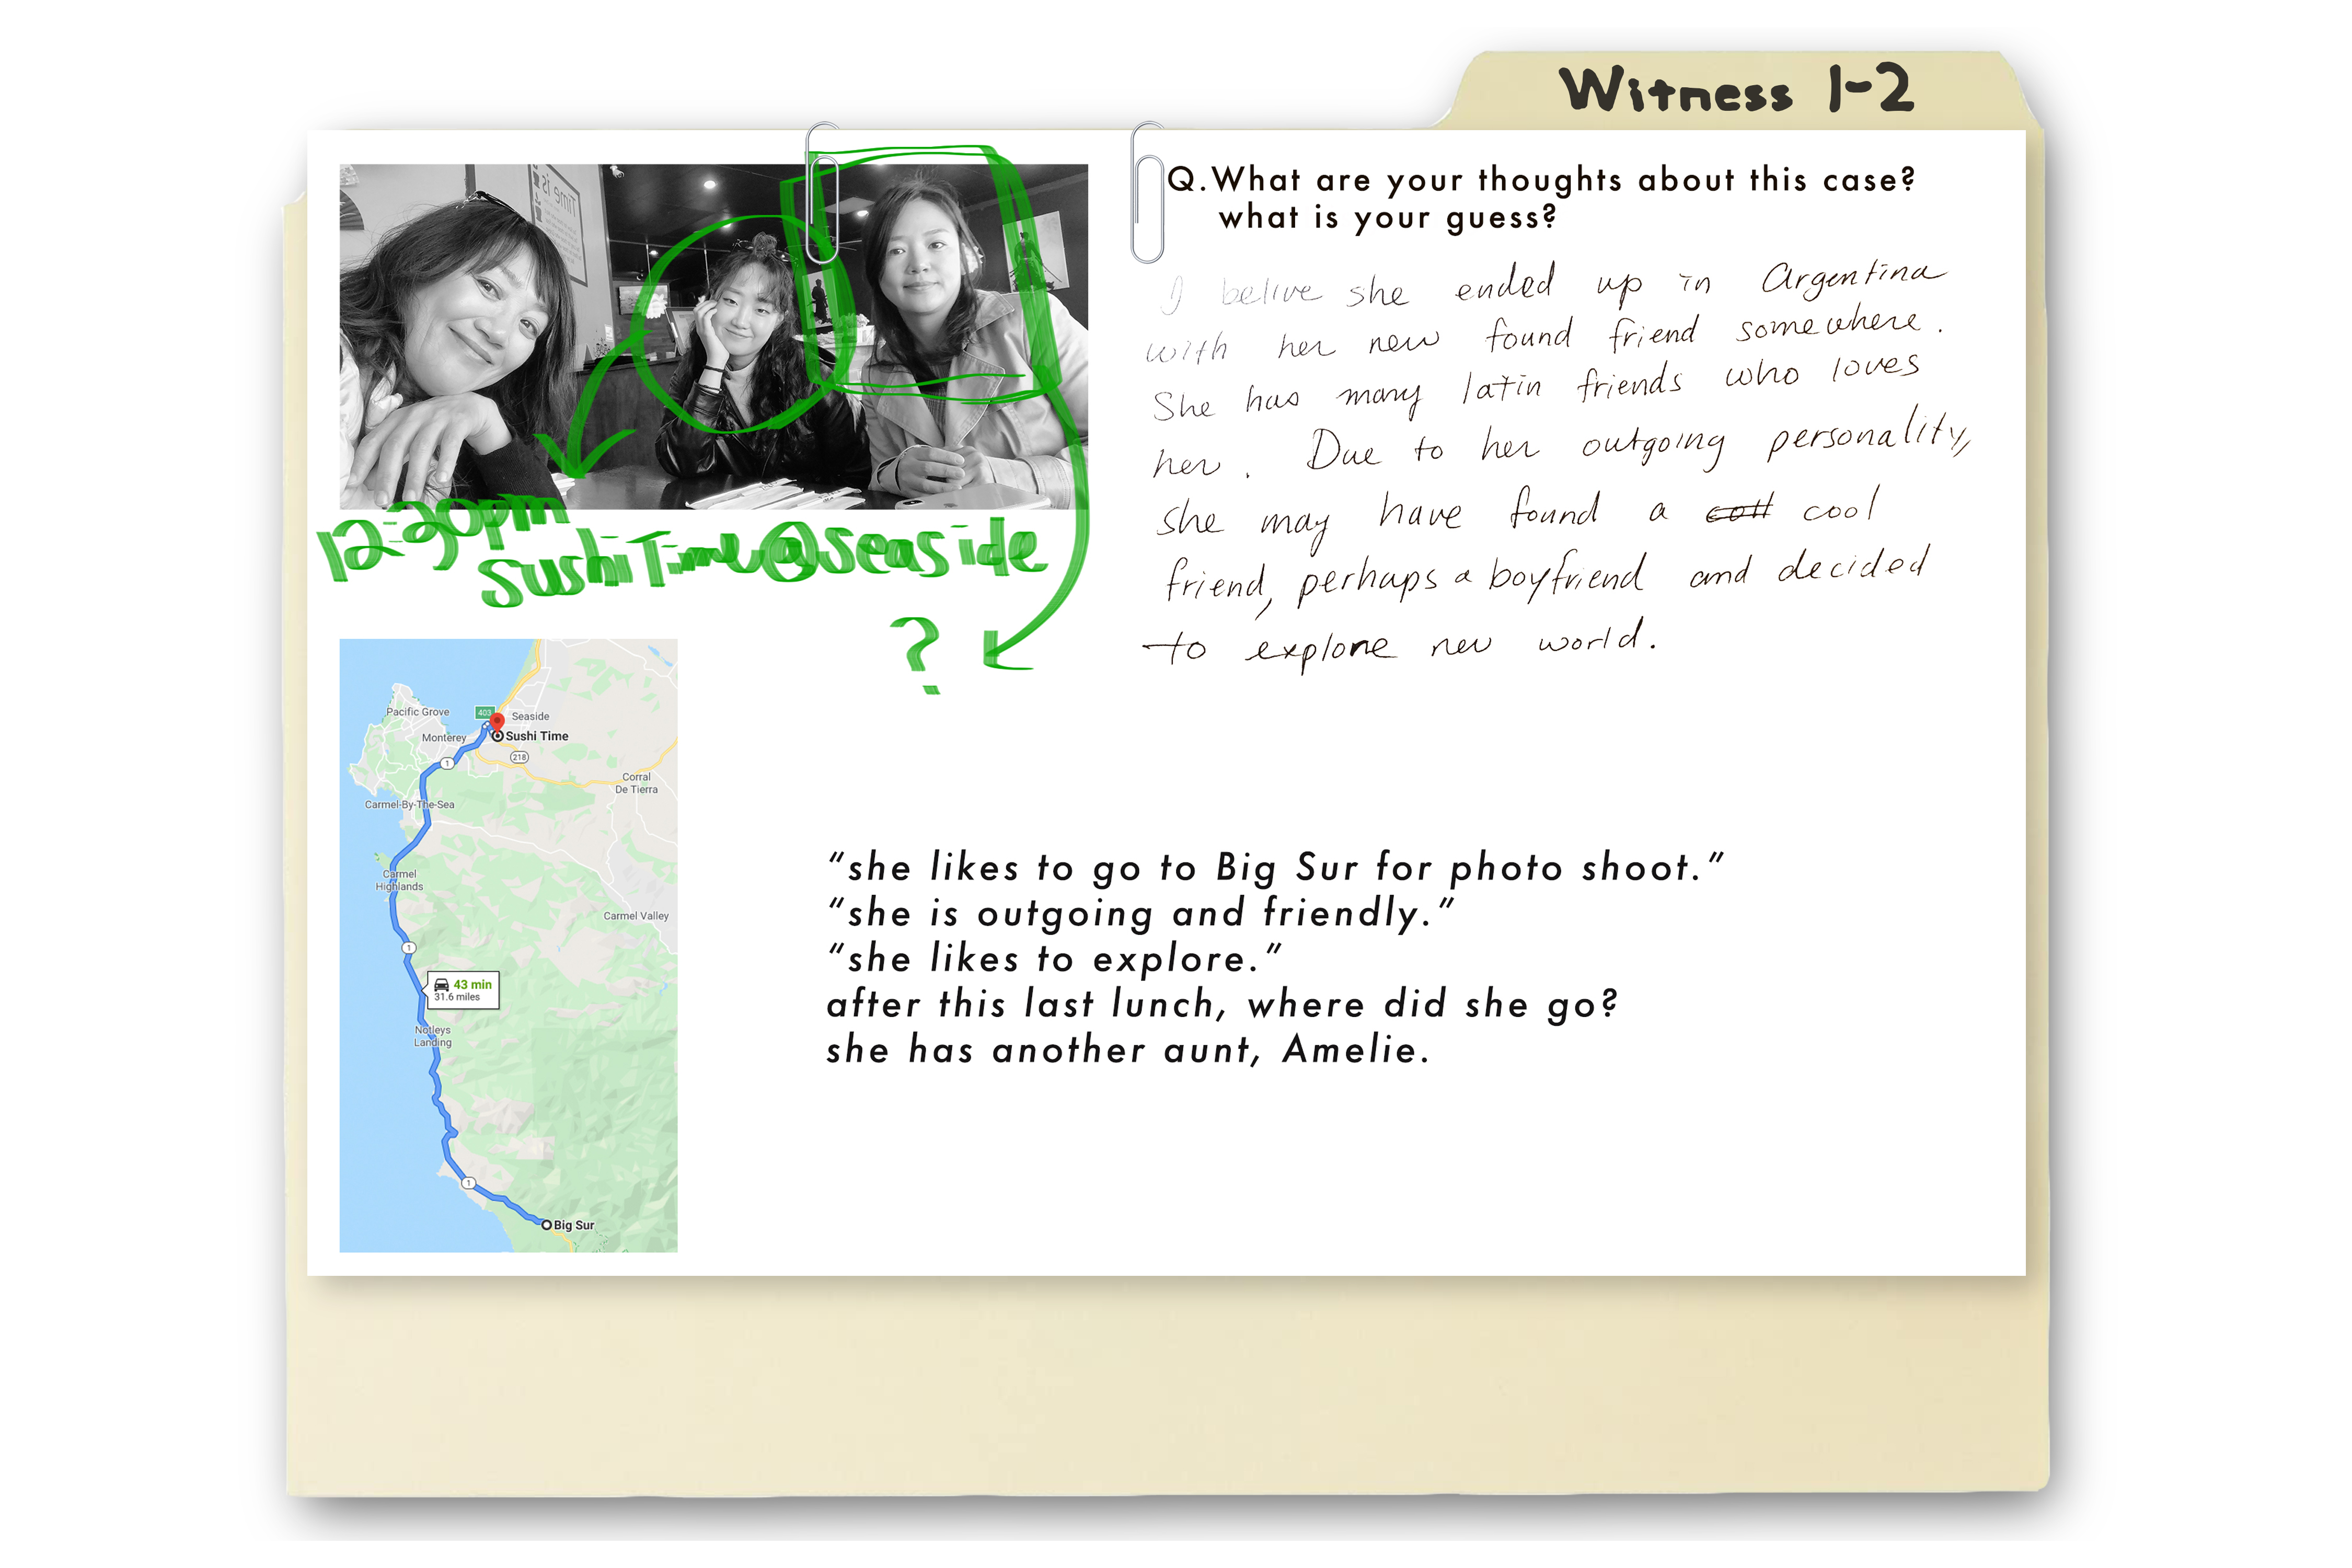 Witness 1-2
Time is
12:30pm
Sushi Time @ seaside
?
Q.What are your thoughts about this case?
what is your guess?
I belive she ended up in Argentina
with her new found friend somewhere.
She has many latin friends who loves
her. Due to her outgoing personality,
she may have found a cool
friend, perhaps a boyfriend and decided
to explore new world.
Pacific Grove
403
Seaside
Monterey
Sushi Time
1
218
Corral
De Tierra
Carmel-By-The-Sea
Carmel
Highlands
Carmel Valley
1
43 min
31.6 miles
Notleys
Landing
1
Big Sur
“she likes to go to Big Sur for photo shoot.”
“she is outgoing and friendly.”
“she likes to explore.”
after this last lunch, where did she go?
she has another aunt, Amelie.